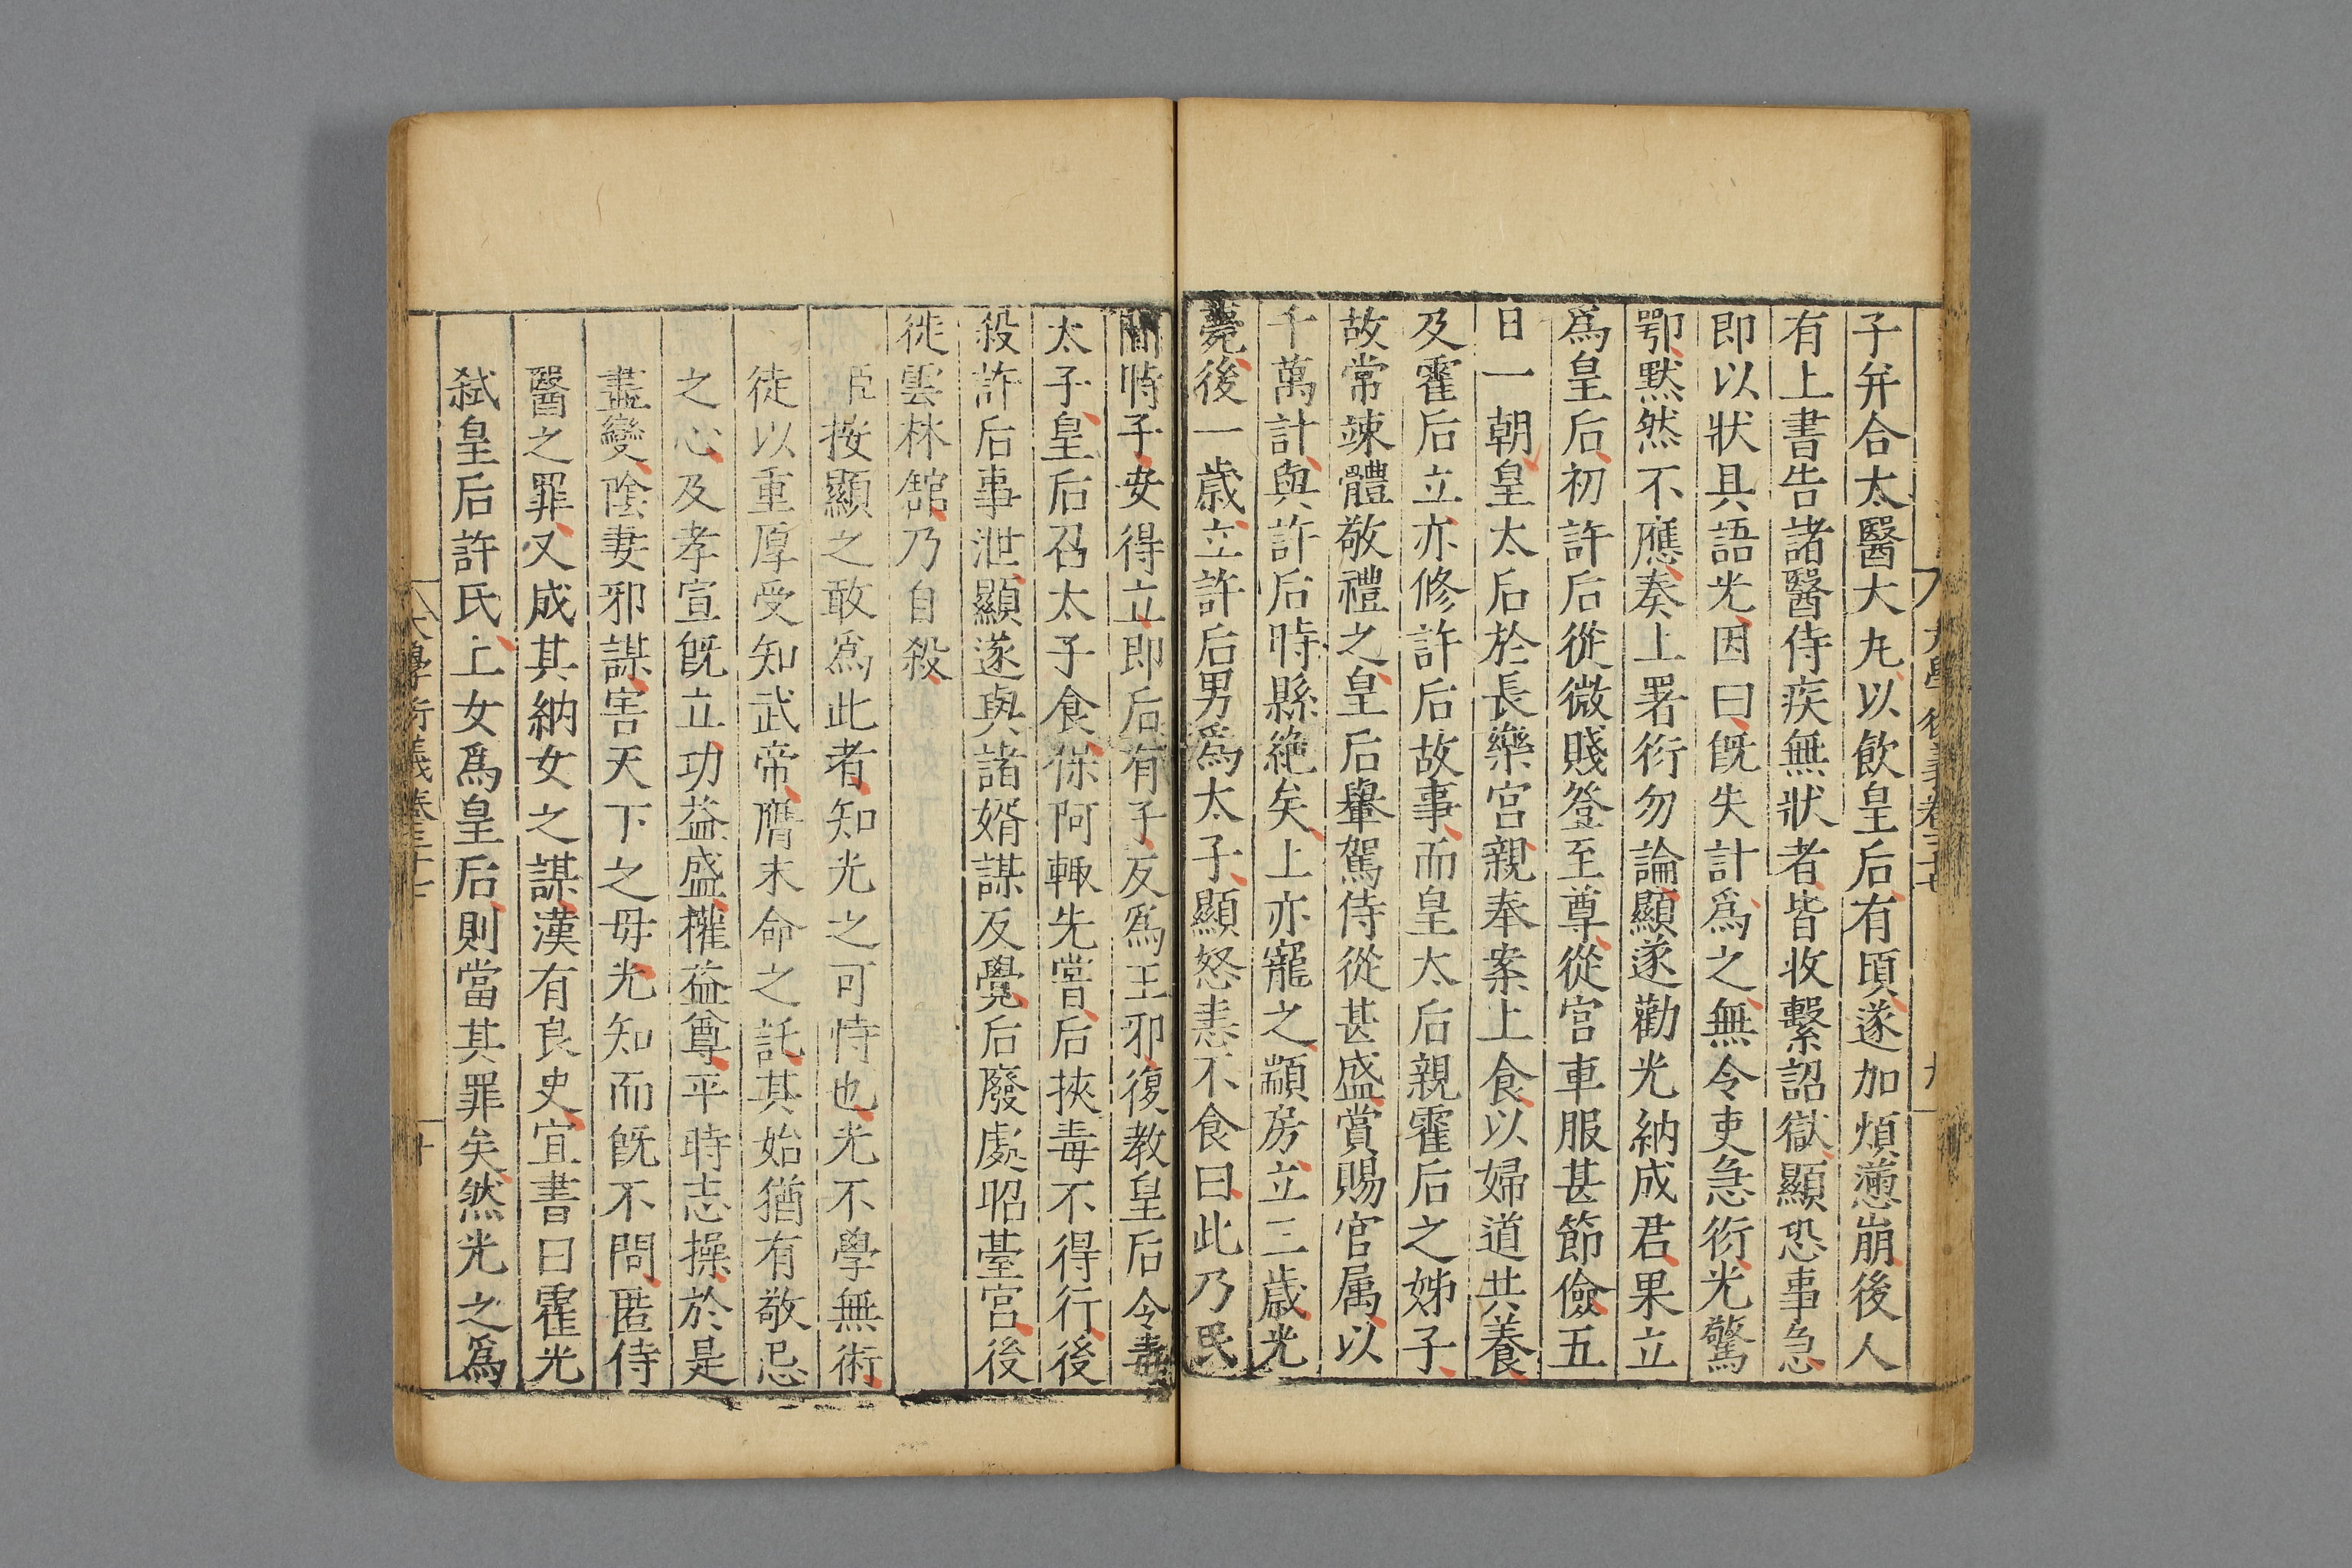 子并合太醫大丸以飲皇后有頃遂加煩懣崩後人
有上書告諸醫侍疾無狀者皆收繫詔獄顯恐事急
即以狀具語光因曰旣失計爲之無令吏急衍光驚
鄂默然不應奏上署衍勿論顯遂勸光納成君果立
爲皇后初許后從微賤登至尊從官車服甚節儉五
日一朝皇太后於長樂宮親奉案上食以婦道共養
及霍后立亦修許后故事而皇太后親霍后之姊子
故常竦體敬禮之皇后轝駕侍從甚盛賞賜官属以
千萬計與許后時縣絶矣上亦寵之顓房立三歲光
薨後一歲立許后男爲太子顯怒恚不食曰此乃民
間時子安得立即后有子反爲王邪復教皇后令毒
太子皇后召太子食保阿輙先嘗后挾毒不得行後
殺許后事泄顯遂與諸婿謀反覺后廢處昭臺宮後
徙雲林舘乃自殺
臣按顯之敢爲此者知光之可恃也光不學無術
徒以重厚受知武帝膺末命之託其始猶有敬忌
之心及孝宣旣立功益盛權益尊平時志操於是
盡變陰妻邪謀害天下之母光知而旣不問匿侍
醫之罪又成其納女之謀漢有良史宜書曰霍光
弑皇后許氏上女爲皇后則當其罪矣然光之爲
大學衍義卷三十七
十